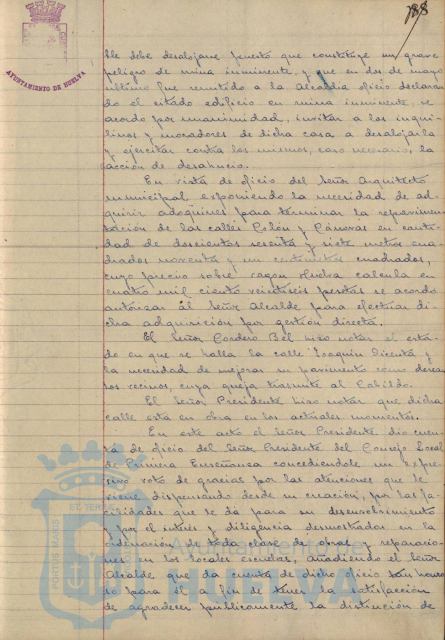 188
AYUNTAMIENTO DE HUELVA
ble debe desalojarse puesto que constituye un grave
peligro de ruina inminente, y que en dos de mayo
ultimo fue remitido a la Alcaldia oficio declaran-
do el estado edificio en ruina inminente, se
acordo por unanimidad, invitar a los inqui-
linos y moradores de dicha casa a desalojarla
y ejercitar contra los mismos, caso necesario, la
acción de desahucio.
En vista de oficio del Señor Arquitecto
municipal exponiendo la necesidad de ad-
quirir adoquines para terminar la repavimen-
tación de las calles Colón y Cánovas en canti-
dad de doscientos sesenta y siete metros cua-
drados noventa y un centimetros cuadrados,
cuyo precio sobre vagon Huelva calcula en
cuatro mil ciento veintiseis pesetas se acordo
autorizar al Señor Alcalde para efectuar di-
cha adquisición por gestión directa.
El Señor Cordero Bel hizo notar el esta-
do en que se halla la calle Joaquin Dicenta y
la necesidad de mejorar su pavimento como desean
los vecinos, cuya queja trasmite al Cabildo.
El Señor Presidente hizo notar que dicha
calle está en obra en los actuales momentos.
En este acto el señor Presidente dio cuen-
ta de oficio del Señor Presidente del Consejo Local
de Primera Enseñanza concediendole un expre-
sivo voto de gracias por las atenciones que le
viene dispensando desde su creación, por las fa-
cilidades que se dá para su desenvolvimiento
y por el interés y diligencia demostrados en la
ordenación de toda clase de obras y reparacio-
nes en los locales escuelas, añadiendo el Señor
Alcalde que da cuenta de dicho oficio tan honro-
so para él a fin de tener la satisfacción
de agradecer publicamente la distinción de
PORTUS MARIS ET TERRAE
Ayuntamiento de
HUELVA